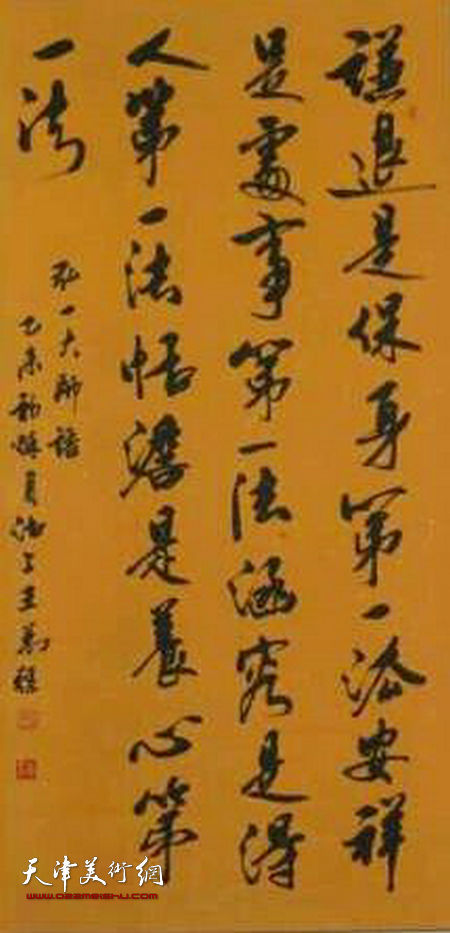 謙退是保身第一法安祥
是處事第一法涵容是待
人第一法恬澹是養心第
一法
弘一大師語
乙未初
天津美術網